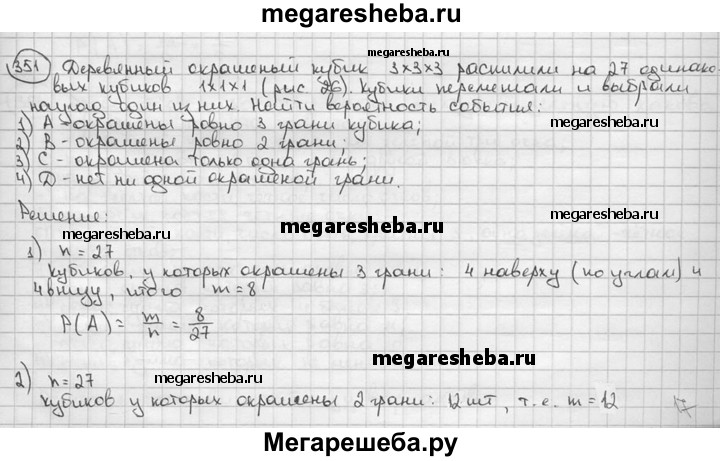 megaresheba.ru
megaresheba.ru
351 Деревянный окрашеный кубик 3×3×3 распилили на 27 одинако-
вых кубиков 1×1×1 (рис 26). Кубики перемешали и выбрали
наугад один из них. Найти вероятность события:
1) А - окрашены ровно 3 грани кубика;
2) В - окрашены ровно 2 грани;
3) С - окрашена только одна грань;
4) D - нет ни одной окрашеной грани.
megaresheba.ru
Решение:
megaresheba.ru
megaresheba.ru
1) n = 27
кубиков, у которых окрашены 3 грани: 4 наверху (по углам) и
4 внизу, итого m = 8
P(A) = m/n = 8/27
megaresheba.ru
2) n = 27
megaresheba.ru
megaresheba.ru
кубиков у которых окрашены 2 грани: 12 шт, т.е. m = 12
Мегарешеба.ру